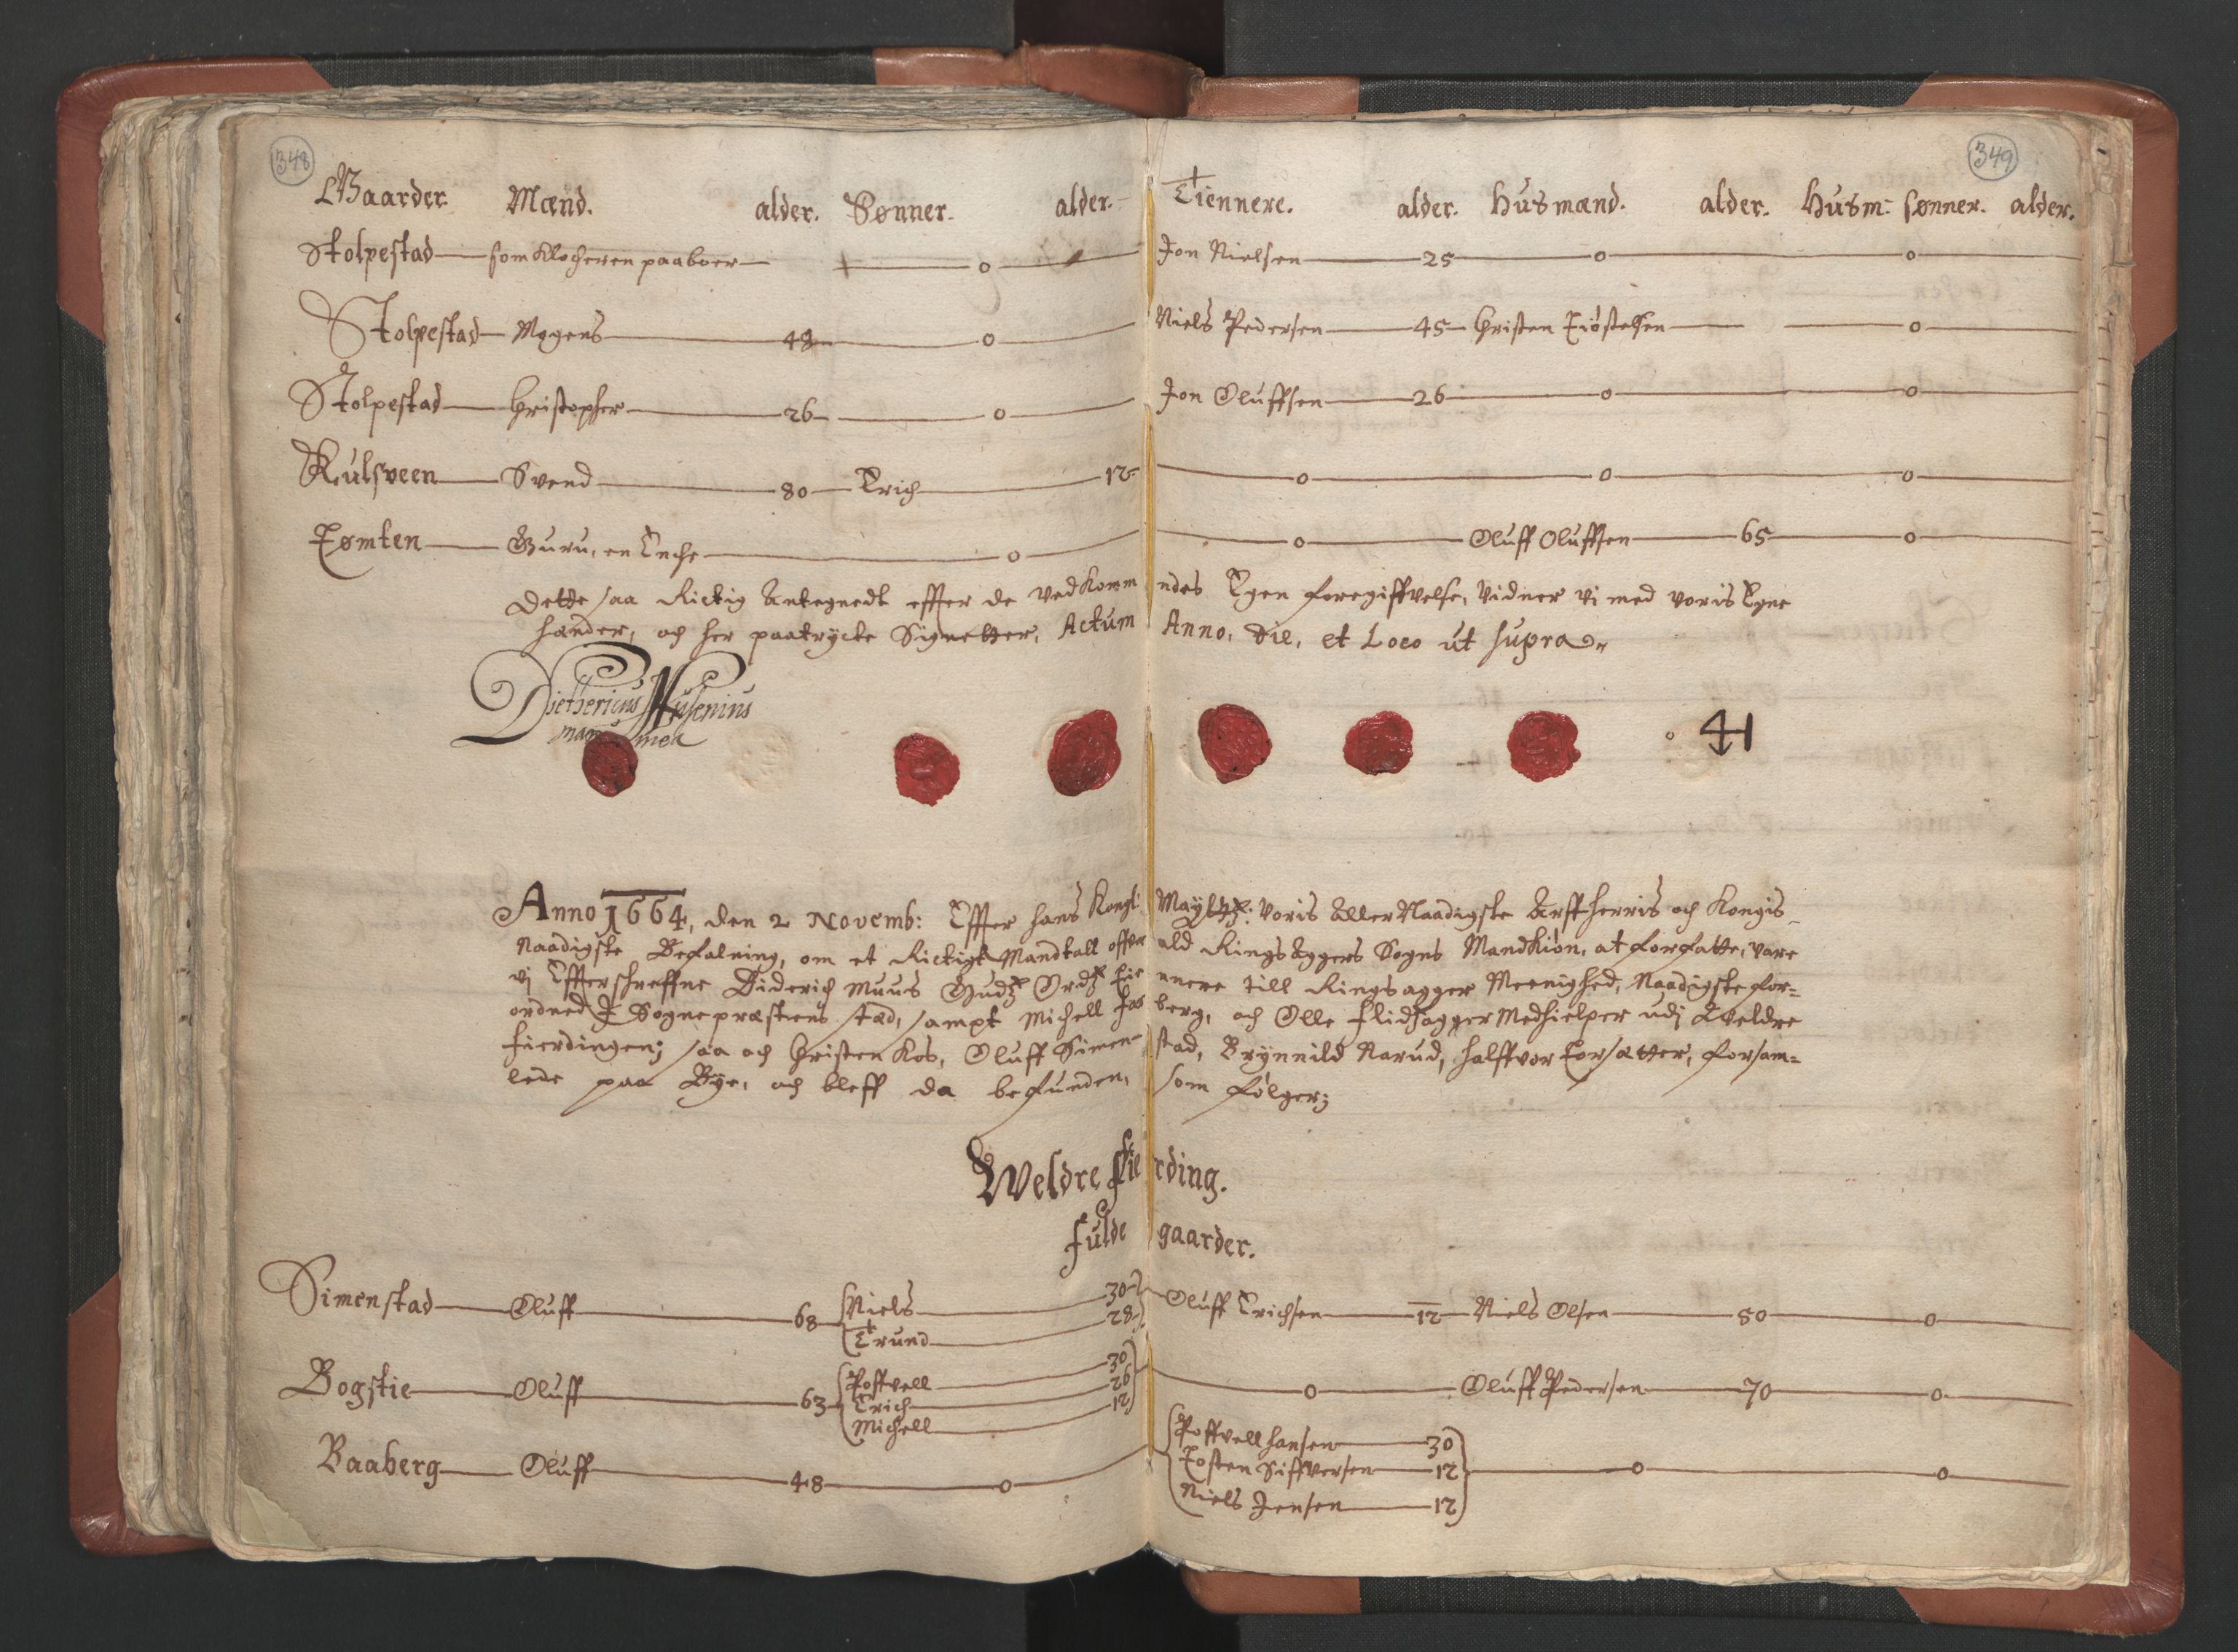 348
349
Gaarder. Mænd. alder. Sønner. alder. Tiennere. alder. Husmænd. alder. Husm: sønner. alder.
Stolpestad som Klocheren paaboer o Jon Nielsen 25 o o
Stolpestad Mogens 48 o Niels Pedersen 45 Christen o
Stolpestad Christopher 26 o Jon Oluffsen 26 o o
Kulsveen Svend 80 Erich 12 o o o
Tømten Guru, en Enche o o Oluff Oluffsen 65 o
Dette saa Rictig Antegnedt effter de vedkommndes Egen foregiffvelse, vidner vi med voris Egne
hænder, och her paatrycte Signetter, Actum Anno, Die, et Loco ut supra
Diethericus Musenius
manu mea
Anno 1664, den 2 Novemb: Effter hans Kongl: Maÿtz: voris Aller Naadigste Arffherris och Kongis
Naadigste Befalning, om et Rictigt Mandtall offver ald Ringsaggers Sogns Mandkiön, at forfatte, vare
vj Effterschreffne Diderich Muus Gudz Ordz Tiennere till Ringsagger Meenighed, Naadigste for-
ordned J Sognepræstens stæd, sampt Michell Jasberg, och Olle flidsagger Medhielper udj Weldre
fierdingen; saa och Christen Kos, Oluff Simenstad, Brÿnnild Narud, halffvor Torsætter, forsam-
lede paa Bÿe, och bleff da befunden, som følger;
Weldre Fierding.
Fulde gaarder.
Simenstad Oluff 68 Niels 30 Oluff Erichsen 12 Niels Olsen 80 o
Trund 28
Bogstie Oluff 63 Poffvell 30 o Oluff Pedersen 70 o
Erich 26
Michell 12
Baaberg Oluff 48 o Poffvell hansen 30 o o
Tosten Siffversen 12
Niels Jensen 12